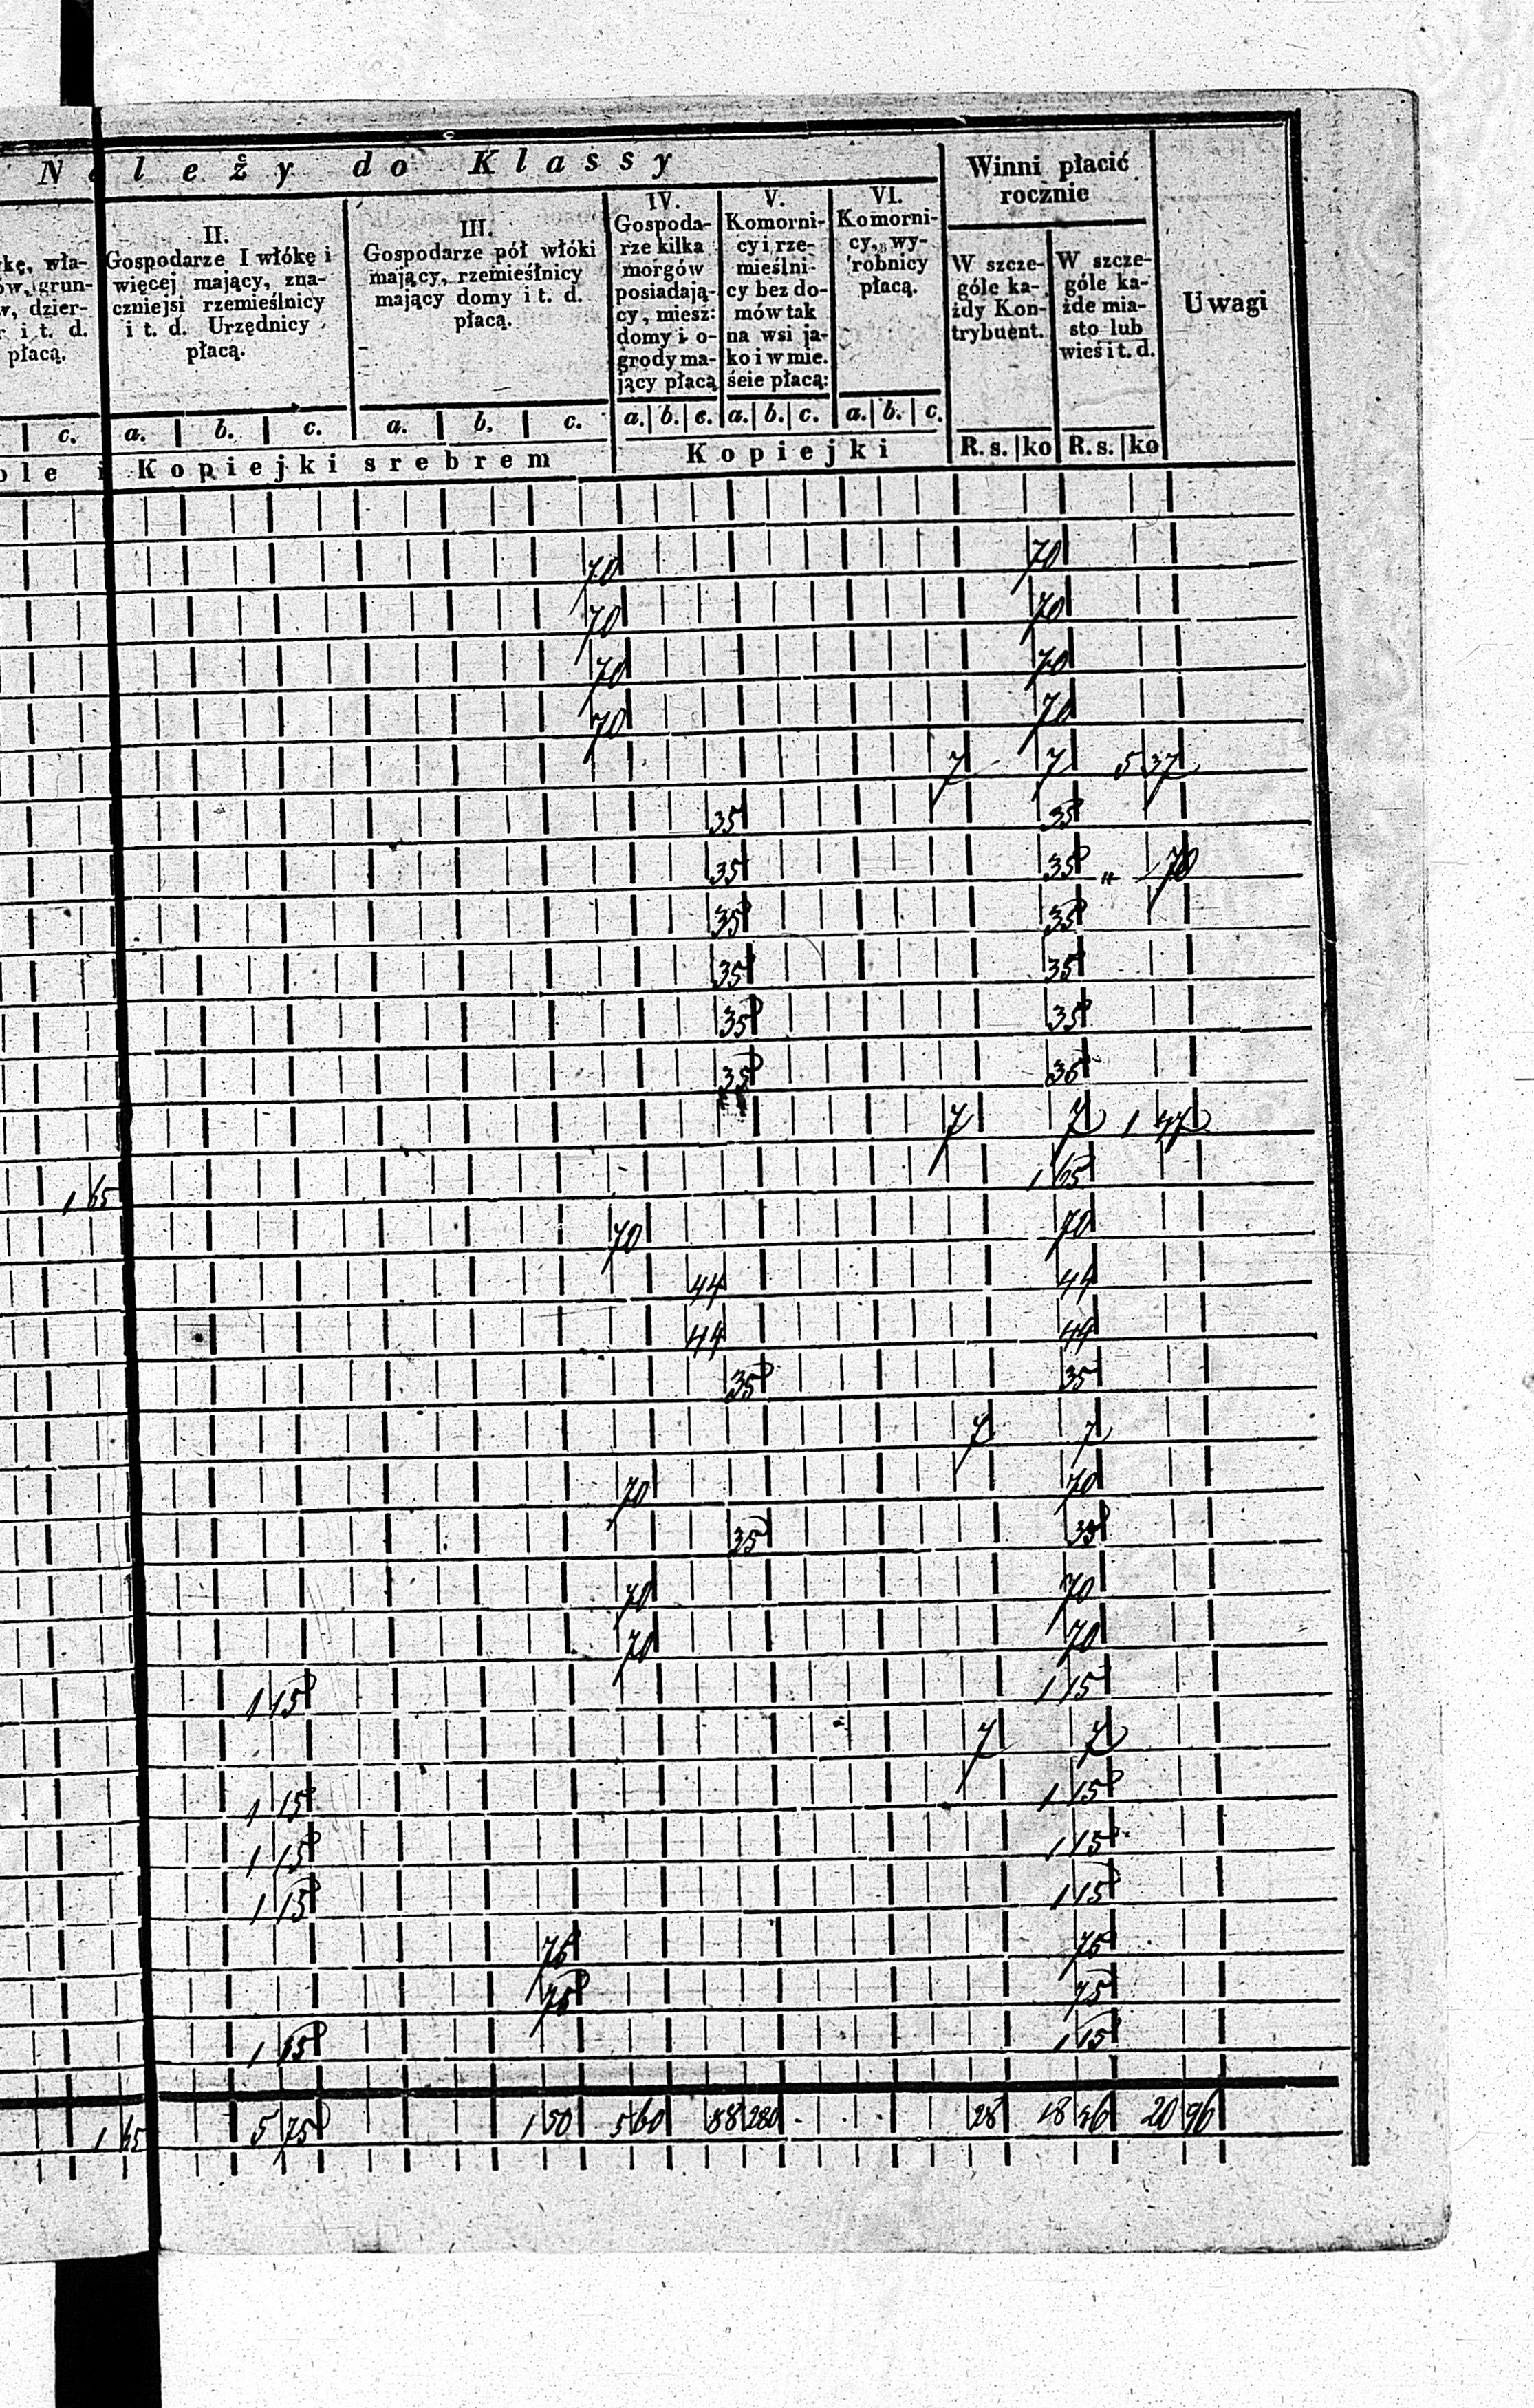 Należy do Klassy
Winni płacić rocznie
Uwagi
kę, wła-
ów, grun-
w, dzier-
r i t. d.
płacą.
II.
Gospodarze I włókę i
więcej mający, zna-
czniejsi rzemieślnicy
i t. d. Urzędnicy
płacą.
III.
Gospodarze pół włóki
mający, rzemieślnicy
mający domy i t. d.
płacą.
IV.
Gospoda-
rze kilka
morgów
posiadają-
cy, miesz:
domy i o-
grody ma-
jący płacą
V.
Komorni-
cy i rze-
mieślni-
cy bez do-
mów tak
na wsi ja-
ko i w mie.
ście płacą:
VI.
Komorni-
cy, wy-
robnicy
płacą.
W szcze-
góle ka-
żdy Kon-
trybuent.
W szcze-
góle ka-
żde mia-
sto lub
wieś i t. d.
c. a. b. c. a. b. c. a. b. c. a. b. c. a. b. c.
ole i Kopiejki srebrem Kopiejki R. s. ko R. s. ko
70 70
70 70
70 70
70 70
7 7 5 37
35 35
35 35 " 70
35 35
35 35
35 35
35 35
7 7 1 47
1 65 1 65
70 70
44 44
44 44
35 35
7 7
70 70
35 35
70 70
70 70
1 15 1 15
7 7
1 15 1 15
1 15 1 15
1 15 1 15
75 75
75 75
1 15 1 15
1 65 5 75 1 50 5 60 88 280 28 18 46 20 96